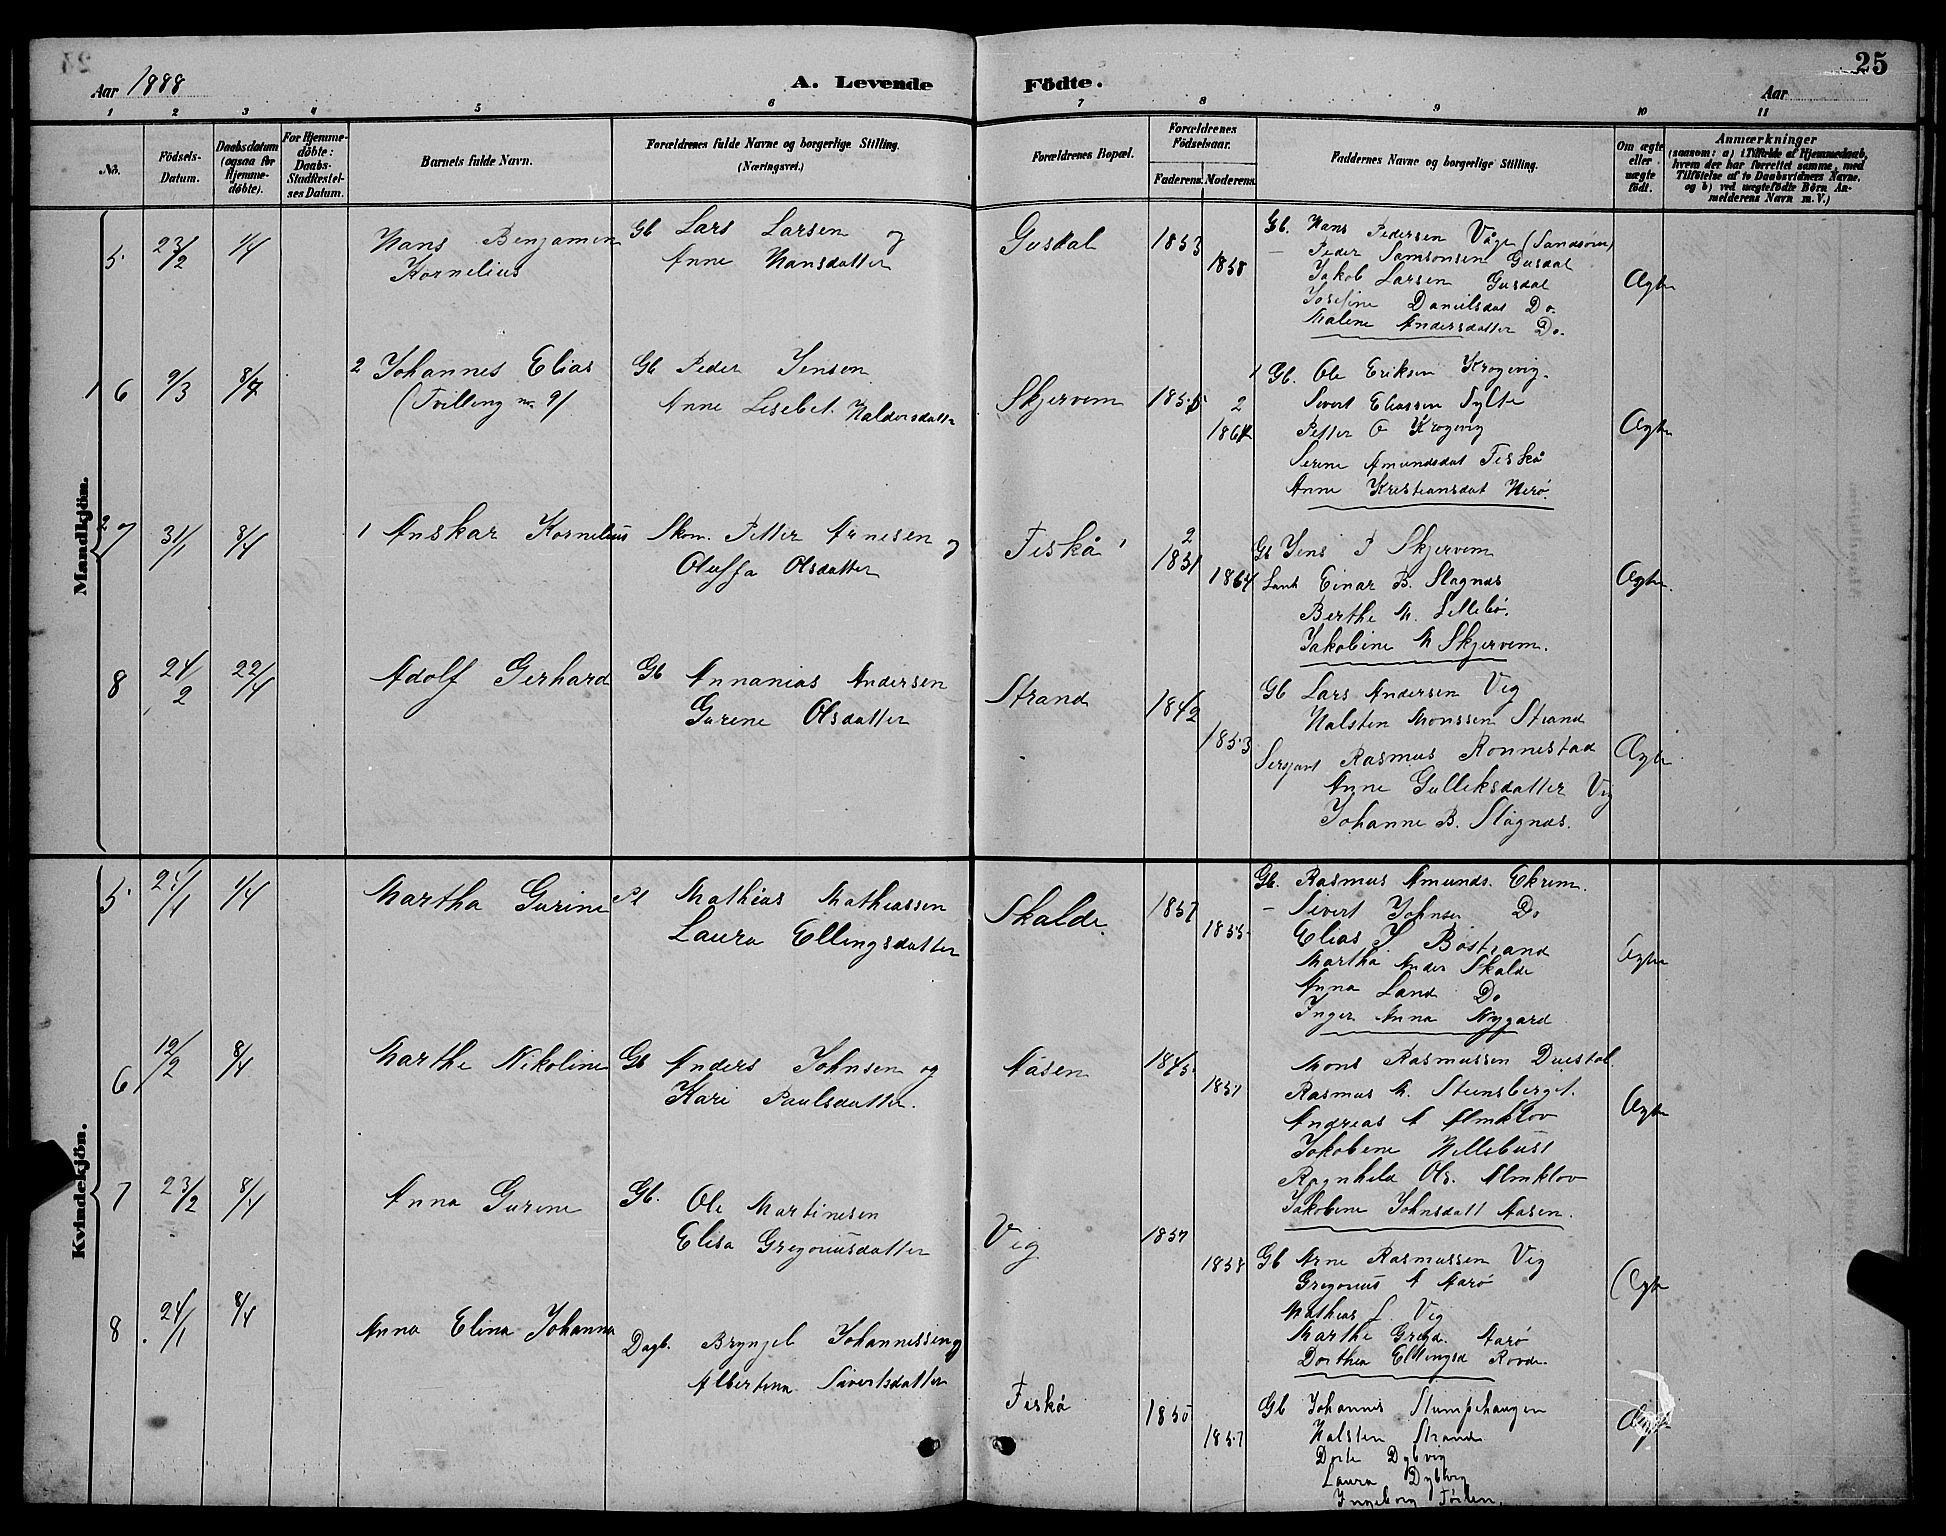 25
Aar 1888
A. Levende Födte.
Aar
1 2 3 4 5 6 7 8 9 10 11
No.
Födsels-Datum.
Daabsdatum (ogsaa for Hjemme-döbte).
For Hjemme-döbte: Daabs-Stadfæstel-ses Datum.
Barnets fulde Navn.
Forældrenes fulde Navne og borgerlige Stilling. (Næringsvei.)
Forældrenes Bopæl.
Forældrenes Födselsaar.
Faderens. Moderens.
Faddernes Navne og borgerlige Stilling.
Om ægte eller uægte födt.
Anmærkninger
(saasom: a) i Tilfælde af Hjemmedaab, hvem der har forrettet samme, med Tilföielse af to Daabsvidners Navne, og b) ved uægtefödte Börn An-melderens Navn m. V.)
Mandkjön.
5 23/2 1/4 Hans Benjamin Kornelius
Gb Lars Larsen og
Anne Hansdatter
Gusdal 1853 1858
Gb. Hans Pedersen Våge (Sandsöen)
– Peder Samsonsen Gusdal
Jakob Larsen Gusdal
Josefine Danielsdat Do
Malene Andersdatter Do.
Ægte
1 6 9/3 8/4 2 Johannes Elias
(Tvilling no 9)
Gb Peder Jensen
Anne Lisebet Haldorsdatter
Skjervem 1855 2 1864
1 Gb. Ole Eriksen Krogevig.
Sivert Eliassen Sylte
Petter O Krogevig
Serine Amundsdat Fiskå
Anne Kristiansdat Herö.
Ægte
2 7 31/1 8/4 1 Anskar Kornelius
Skom. Petter Arnesen og
Oluffa Olsdatter
Fiskå 1 2 1851 1864
Gb Jens P Skjervem
Einar B. Slagnæs
Berthe M. Lillebö.
Jakobine M Skjervem.
Ægte.
8 24/2 22/4 Adolf Gerhard
Gb Annanias Andersen
Gurene Olsdatter
Strand 1842 1853
Gb Lars Andersen Vig
Halsten Monssen Strand
Serjant Rasmus Ronnestad
Anne Gulleksdatter Vig
Johanne B. Slagnæs.
Ægte
Kvindekjön.
5 1/4 Martha Gurine
Pl Mathias Mathiassen
Laura Ellingsdatter
Skalde. 1857 1855
Gb. Rasmus Amunds. Ekrem.
– Sivert Johnsen Do
Elias J Böstrand
Martha Ander Skalde
Anna Land Do
Inger Anna Nygard
Ægte
6 12/2 8/4 Marthe Nikoline
Gb Anders Johnsen og
Kari Paulsdatter.
Aasen 1845 1851
Mons Rasmussen Duestol
Rasmus M. Steinsberget.
Andreas A Almklov
Jakobine Hillebust
Ragnhild Ols. Almklov
Jakobine Johnsdatt Aasen.
Ægte
7 23/2 8/4 Anna Gurine
Gb. Ole Martinesen
Elisa Gregoriusdatter
Vig 1857 1858
Gb Arne Rasmussen Vig
Gregorius A Aarö
Mathias L Vig
Marthe Gregd. Aarö
Dorthea Ellingsd Rovde.
Ægte
8 24/1 8/4 Anna Elina Johanna
Dagb. Brynjel Johannessen og
Albertina Sivertsdatter
Fiskå 1850 1857
Gb Johannes Stumpehaugen
Halsten Strand
Dorte Dybvig
Laura Dybvig
Ingeborg
Ægte